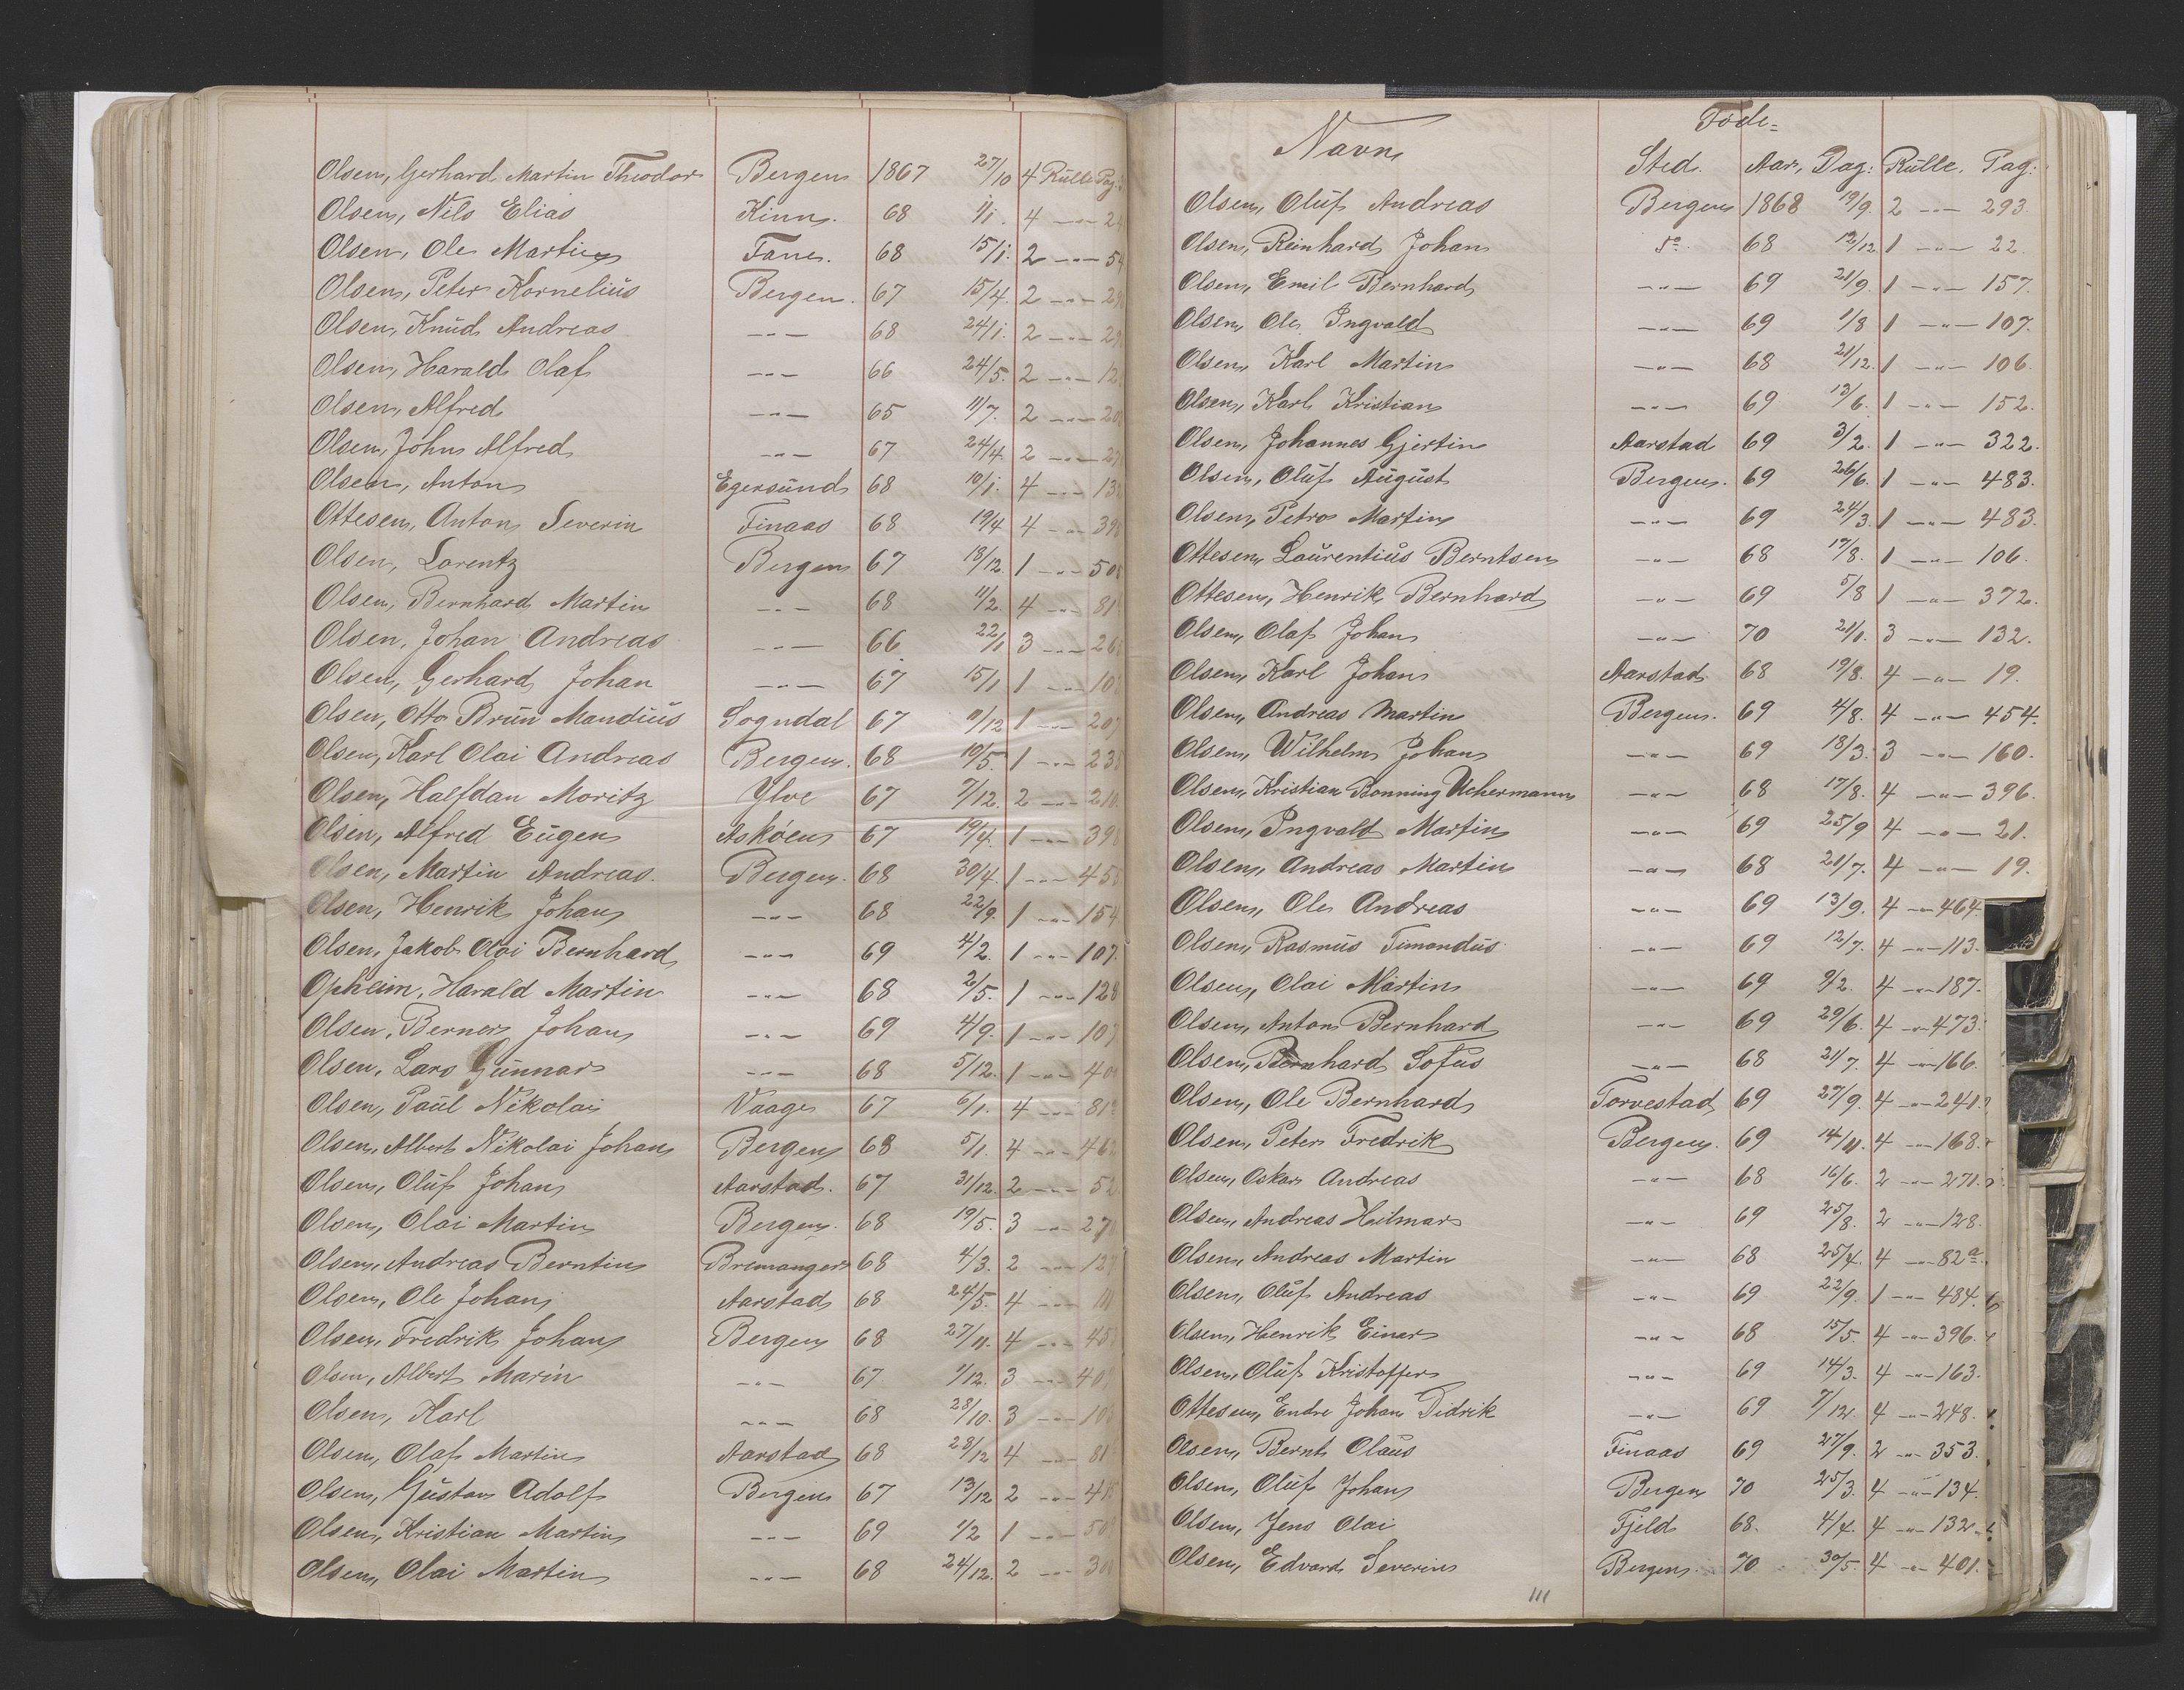 Olsen, Gerhard Martin Theodor Bergen 1867 27/10 4 Rulle Pag:
Olsen, Nils Elias Kinn. 68 1/1 4 -"-
Olsen, Ole Martin Fane. 68 15/1. 2 -"-
Olsen, Peter Kornelius Bergen. 67 15/4. 2 -"-
Olsen, Knud Andreas -"- 68 24/1. 2 -"-
Olsen, Harald Olaf -"- 66 24/5. 2 -"-
Olsen, Alfred -"- 65 11/7. 2 -"-
Olsen, John Alfred -"- 67 24/4. 2 -"-
Olsen, Anton Egersund 68 10/1. 4 -"-
Ottesen, Anton Severin Finaas 68 19/4 4 -"-
Olsen, Lorentz Bergen 67 18/12. 1 -"-
Olsen, Bernhard Martin -"- 68 11/2. 4 -"-
Olsen, Johan Andreas -"- 66 22/1 3 -"-
Olsen, Gerhard Johan -"- 67 15/1 1 -"-
Olsen, Otto Brun Mandius Sogndal 67 11/12 1 -"-
Olsen, Karl Olai Andreas Bergen. 68 10/5. 1 -"-
Olsen, Halfdan Moritz Ylve 67 7/12. 2 -"-
Olsen, Alfred Eugen Askøen 67 19/4. 1 -"-
Olsen, Martin Andreas. Bergen. 68 30/4. 1 -"-
Olsen, Henrik Johan -"- 68 22/9. 1 -"- 154
Olsen, Jakob Olai Bernhard -"- 69 4/2. 1 -"- 107.
Opheim, Harald Martin -"- 68 2/5. 1 -"- 128
Olsen, Berner Johan -"- 69 4/9. 1 -"- 107
Olsen, Lars Gunnar -"- 68 5/12. 1 -"-
Olsen, Paul Nikolai Vaage 67 6/1. 4 -"-
Olsen, Albert Nikolai Johan Bergen 68 5/1. 4 -"-
Olsen, Oluf Johan Aarstad. 67 31/12. 2 -"-
Olsen, Olai Martin Bergen. 68 19/5. 3 -"-
Olsen, Andreas Berntin Bremanger 68 4/3. 2 -"-
Olsen, Ole Johan Aarstad 68 24/5. 4 -"-
Olsen, Fredrik Johan Bergen 68 27/11. 4 -"-
Olsen, Albert Marin -"- 67. 1/12. 3 -"-
Olsen, Karl -"- 68 28/10. 3 -"-
Olsen, Olaf Martin Aarstad 68 28/12 4 -"-
Olsen, Gustav Adolf Bergen 67 13/12 2 -"-
Olsen, Kristian Martin -"- 69 1/2 1 -"-
Olsen, Olai Martin -"- 68 24/12. 2 -"-
Navn Føde=
Sted. Aar, Dag: Rulle. Pag:
Olsen, Oluf Andreas Bergen 1868 19/9. 2 -"- 293
Olsen, Reinhard Johan do. 68 12/12 1 -"- 22.
Olsen, Emil Bernhard -"- 69 21/9. 1 -"- 157.
Olsen, Ole Ingvald -"- 69 1/8 1 -"- 107.
Olsen, Karl Martin -"- 68 21/12. 1 -"- 106.
Olsen, Karl Kristian -"- 69 13/6. 1 -"- 152.
Olsen, Johannes Gjertin Aarstad 69 3/2. 1 -"- 322.
Olsen, Oluf August Bergen. 69 26/6. 1 -"- 483.
Olsen, Petro Martin -"- 69 24/3. 1 -"- 483.
Ottesen, Laurentius Berntsen -"- 68 17/8. 1 -"- 106.
Ottesen, Henrik Bernhard -"- 69 5/8 1 -"- 372.
Olsen, Olaf Johan -"- 70 21/1. 3 -"- 132.
Olsen, Karl Johan Aarstad 68 19/8. 4 -"- 19.
Olsen, Andreas Martin Bergen. 69 4/8. 4 -"- 454.
Olsen, Wilhelm Johan -"- 69 18/3. 3 -"- 160.
Olsen, Kristian Bonning Uchermann -"- 68 17/8. 4 -"- 396.
Olsen, Ingvald Martin -"- 69 25/9 4 -"- 21.
Olsen, Andreas Martin -"- 68 21/7. 4 -"- 19.
Olsen, Ole Andreas -"- 69 13/9. 4 -"- 464.
Olsen, Rasmus Timandus -"- 69 12/7. 4 -"- 113.
Olsen, Olai Martin -"- 69 9/2. 4 -"- 187.
Olsen, Anton Bernhard -"- 69 29/6. 4 -"- 473.
Olsen, Bernhard Sofus -"- 68 21/7. 4 -"- 166.
Olsen, Ole Bernhard Torvestad 69 27/9. 4 -"- 241.
Olsen, Peter Fredrik Bergen. 69 14/11. 4 -"- 168.
Olsen, Oskar Andreas -"- 68 16/6. 2 -"- 271.
Olsen, Andreas Hilmar -"- 69 25/8. 2 -"- 128.
Olsen, Andreas Martin -"- 68 25/4. 4 -"- 82a
Olsen, Oluf Andreas -"- 69 22/9. 1 -"- 484.
Olsen, Henrik Einar -"- 68 15/5. 4 -"- 396.
Olsen, Oluf Kristoffer -"- 69 14/3. 4 -"- 163.
Ottesen, Endre Johan Didrik -"- 69 7/12. 4 -"- 248.
Olsen, Bernt Olaus Finaas 69 27/9. 2 -"- 353.
Olsen, Oluf Johan Bergen 70 25/3. 4 -"- 134.
Olsen, Jens Olai Fjeld 68. 4/4. 4 -"- 132.
Olsen, Edvard Severin Bergen. 70 30/5. 4 -"- 401.
111